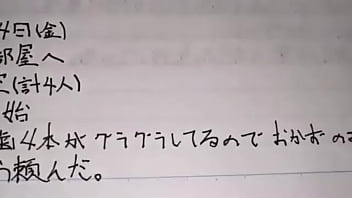 4日(金)
部屋へ
(計4人)
始
歯4本がグラグラしてるのでおかずの
頼んだ。